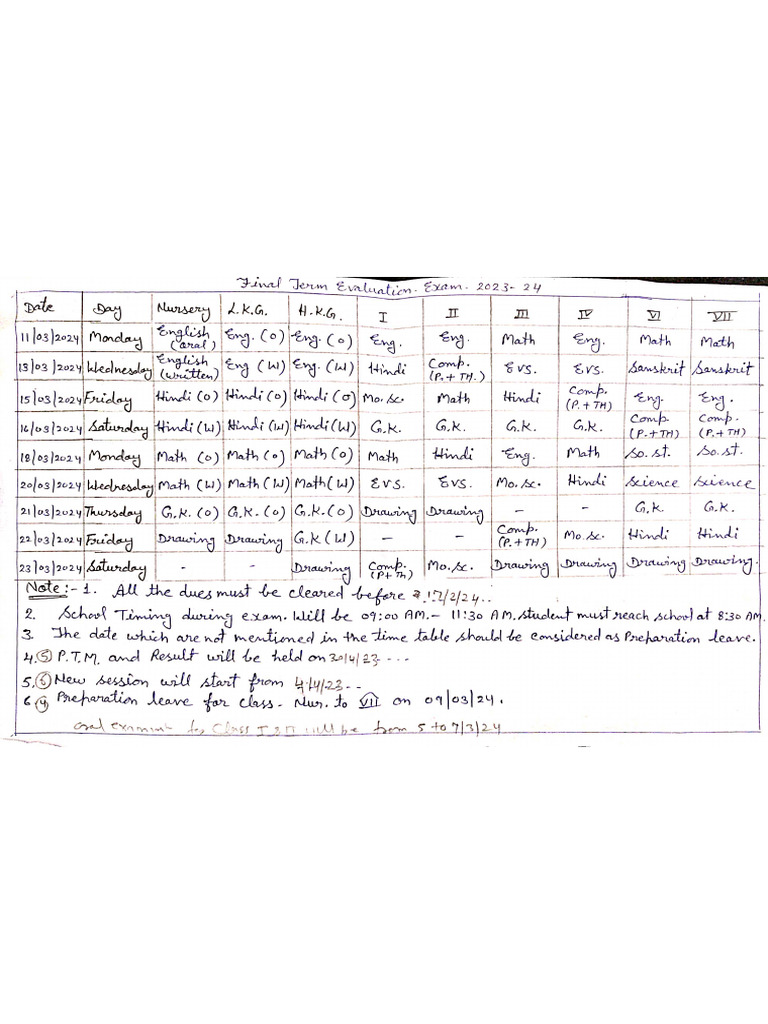 Final Term Evaluation. Exam. 2023-24
Date Day Nursery L.K.G. H.K.G. I II III IV VI VII
11/03/2024 Monday English (oral) Eng. (O) Eng. (O) Eng. Eng. Math Eng. Math Math
13/03/2024 Wednesday English (written) Eng (W) Eng. (W) Hindi Comp. (P.+TH.) EVS. EVS. Sanskrit Sanskrit
15/03/2024 Friday Hindi (O) Hindi (O) Hindi (O) Mo.Sc. Math Hindi Comp. (P.+TH) Eng. Eng.
16/03/2024 Saturday Hindi (W) Hindi (W) Hindi (W) G.K. G.K. G.K. G.K. Comp (P.+TH) Comp. (P.+TH)
18/03/2024 Monday Math (O) Math (O) Math (O) Math Hindi Eng. Math So.St. So.St.
20/03/2024 Wednesday Math (W) Math (W) Math (W) EVS. EVS. Mo.Sc. Hindi Science Science
21/03/2024 Thursday G.K. (O) G.K. (O) G.K. (O) Drawing Drawing - - G.K. G.K.
22/03/2024 Friday Drawing Drawing G.K (W) - - Comp. (P.+TH) Mo.Sc. Hindi Hindi
23/03/2024 Saturday - - Drawing Comp. (P+Th) Mo.Sc. Drawing Drawing Drawing Drawing.
Note :- 1. All the dues must be cleared before 17/2/24..
2. School Timing during exam. Will be 09:00 AM.- 11:30 AM. student must reach school at 8:30 AM.
3. The date which are not mentioned in the time table should be considered as Preparation leave.
4. (5) P.T.M. and Result will be held on 30/4/23...
5. New session will start from 4/4/23..
6 (4) Preparation leave for class. Nur. to VII on 09/03/24.
oral for Class I & II will be from 5 to 7/3/24